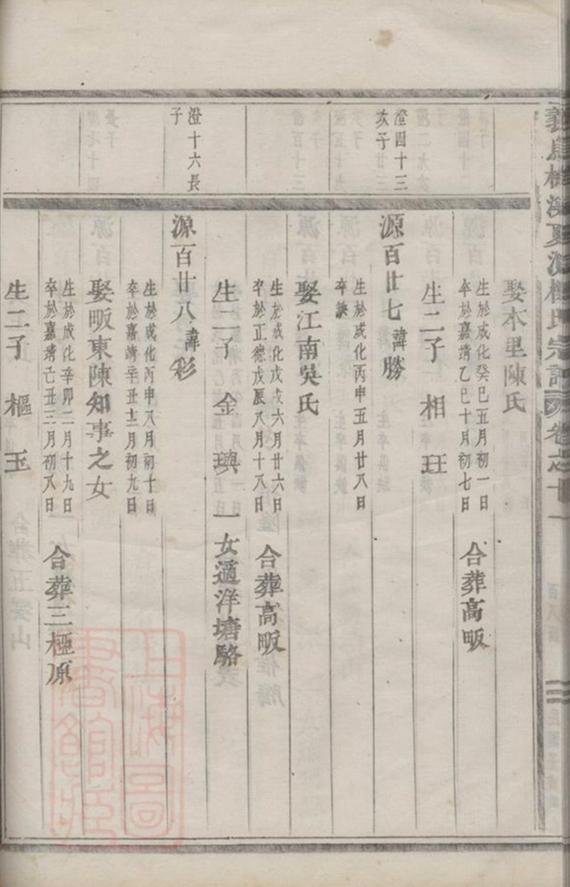 娶木里陳氏
生於成化癸巳五月初一日
卒於嘉靖乙巳十月初七日
合葬高畈
生二子 相 玨
澄四十三
亥子
源百廿七 諱勝
生於成化丙申五月廿八日
卒缺
娶江南吳氏
生於成化戊戌六月廿六日
卒於正德戊辰八月十八日
合葬高畈
生二子 金 璵 一女適洋塘駱
澄十六長
子
源百廿八 諱彩
生於成化丙申八月初十日
卒於嘉靖辛丑十二月初九日
娶畈東陳知事之女
生於成化辛卯二月十九日
卒於嘉靖己丑三月初八日
合葬三極原
生二子 樞 玉
上海圖書館藏